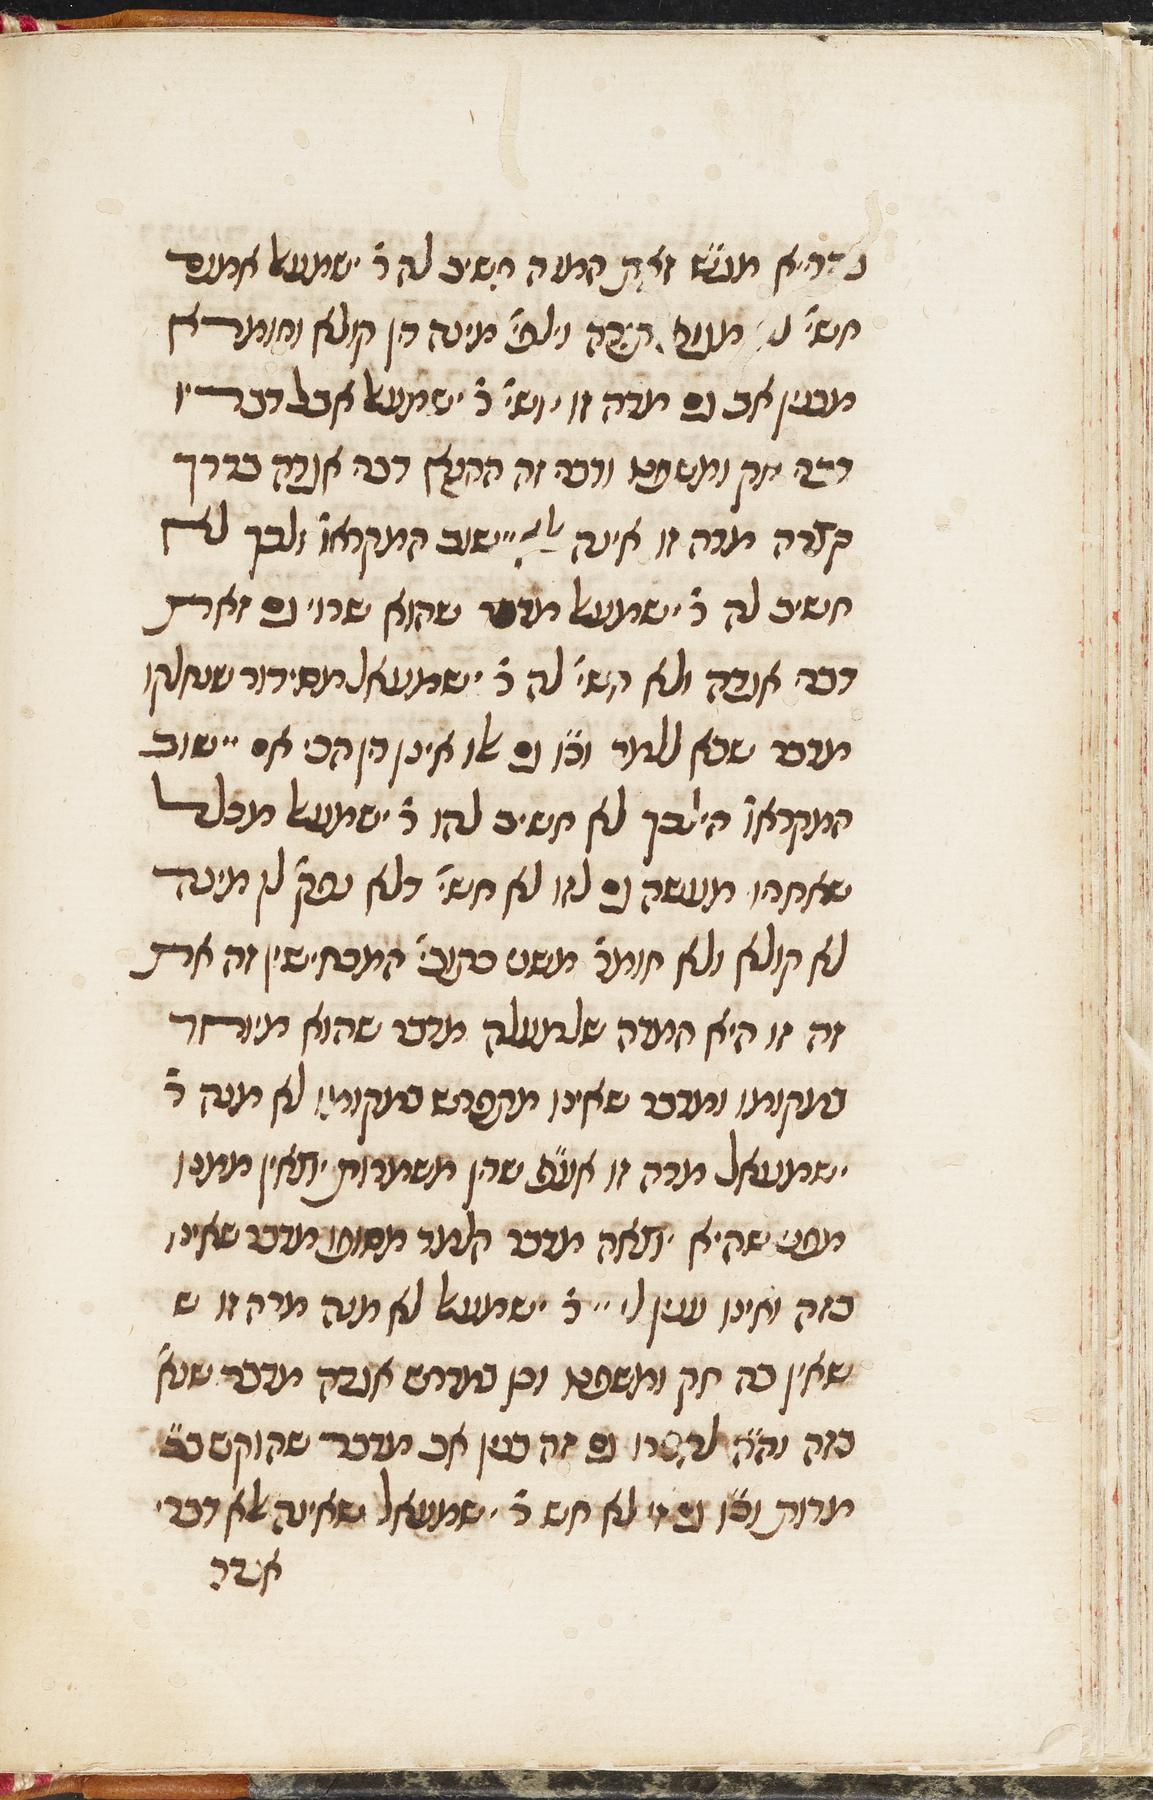 בהדיא מג״ש זאת המדה חשיב לה ר׳ ישמעאל אמנם
חשי׳ מינה הן קולא וחומרא
מבנין אב גם מדה זו יחשי׳ ר׳ ישמעאל אבל דבריו
דבר חק ומשפט ודבר זה הנקרא דבר אגדה בדרך
קצרה מדה זו אינה אלא יישוב המקראו׳ ולכך לא
חשיב לה ר׳ ישמעאל מדבר שהוא שנוי גם זאת
דבר אגדה ולא חשי׳ לה ר׳ ישמעאל מסידור שנחלקו
מדבר שבא ללמד וכ״ו גם אלו אינן הן הכי אם יישוב
המקראו׳ הילכך לא חשיב להו ר׳ ישמעאל מכלל
שאחריו מעשה גם לזו לא חשי׳ דלא נפק׳ לן מינה
לא קולא ולא חומר׳ משני כתובי׳ המכחישין זה את
זה זו היא המדה שלמעלה מדבר שהוא מיוחד
במקומו ומדבר שאינו מתפרש במקומו לא מנה ר׳
ישמעאל מדה זו אע״פ שהן משמרות יוצאין ממנו
מפני שהיא יוצאה מדבר הלמד מסופו מדבר שאינו
בזה ואינו ענין לי״י ר׳ ישמעאל לא מנה מדה זו ש
שאין בה חק ומשפט וכן במדרש אגדה מדבר שנא׳
בזה וה״ה לחבירו גם זה בנין אב מדבר שהוקש בב׳
מדות וכ״ו גם זו לא חש ר׳ ישמעאל שאינה אלא דברי
אגדה